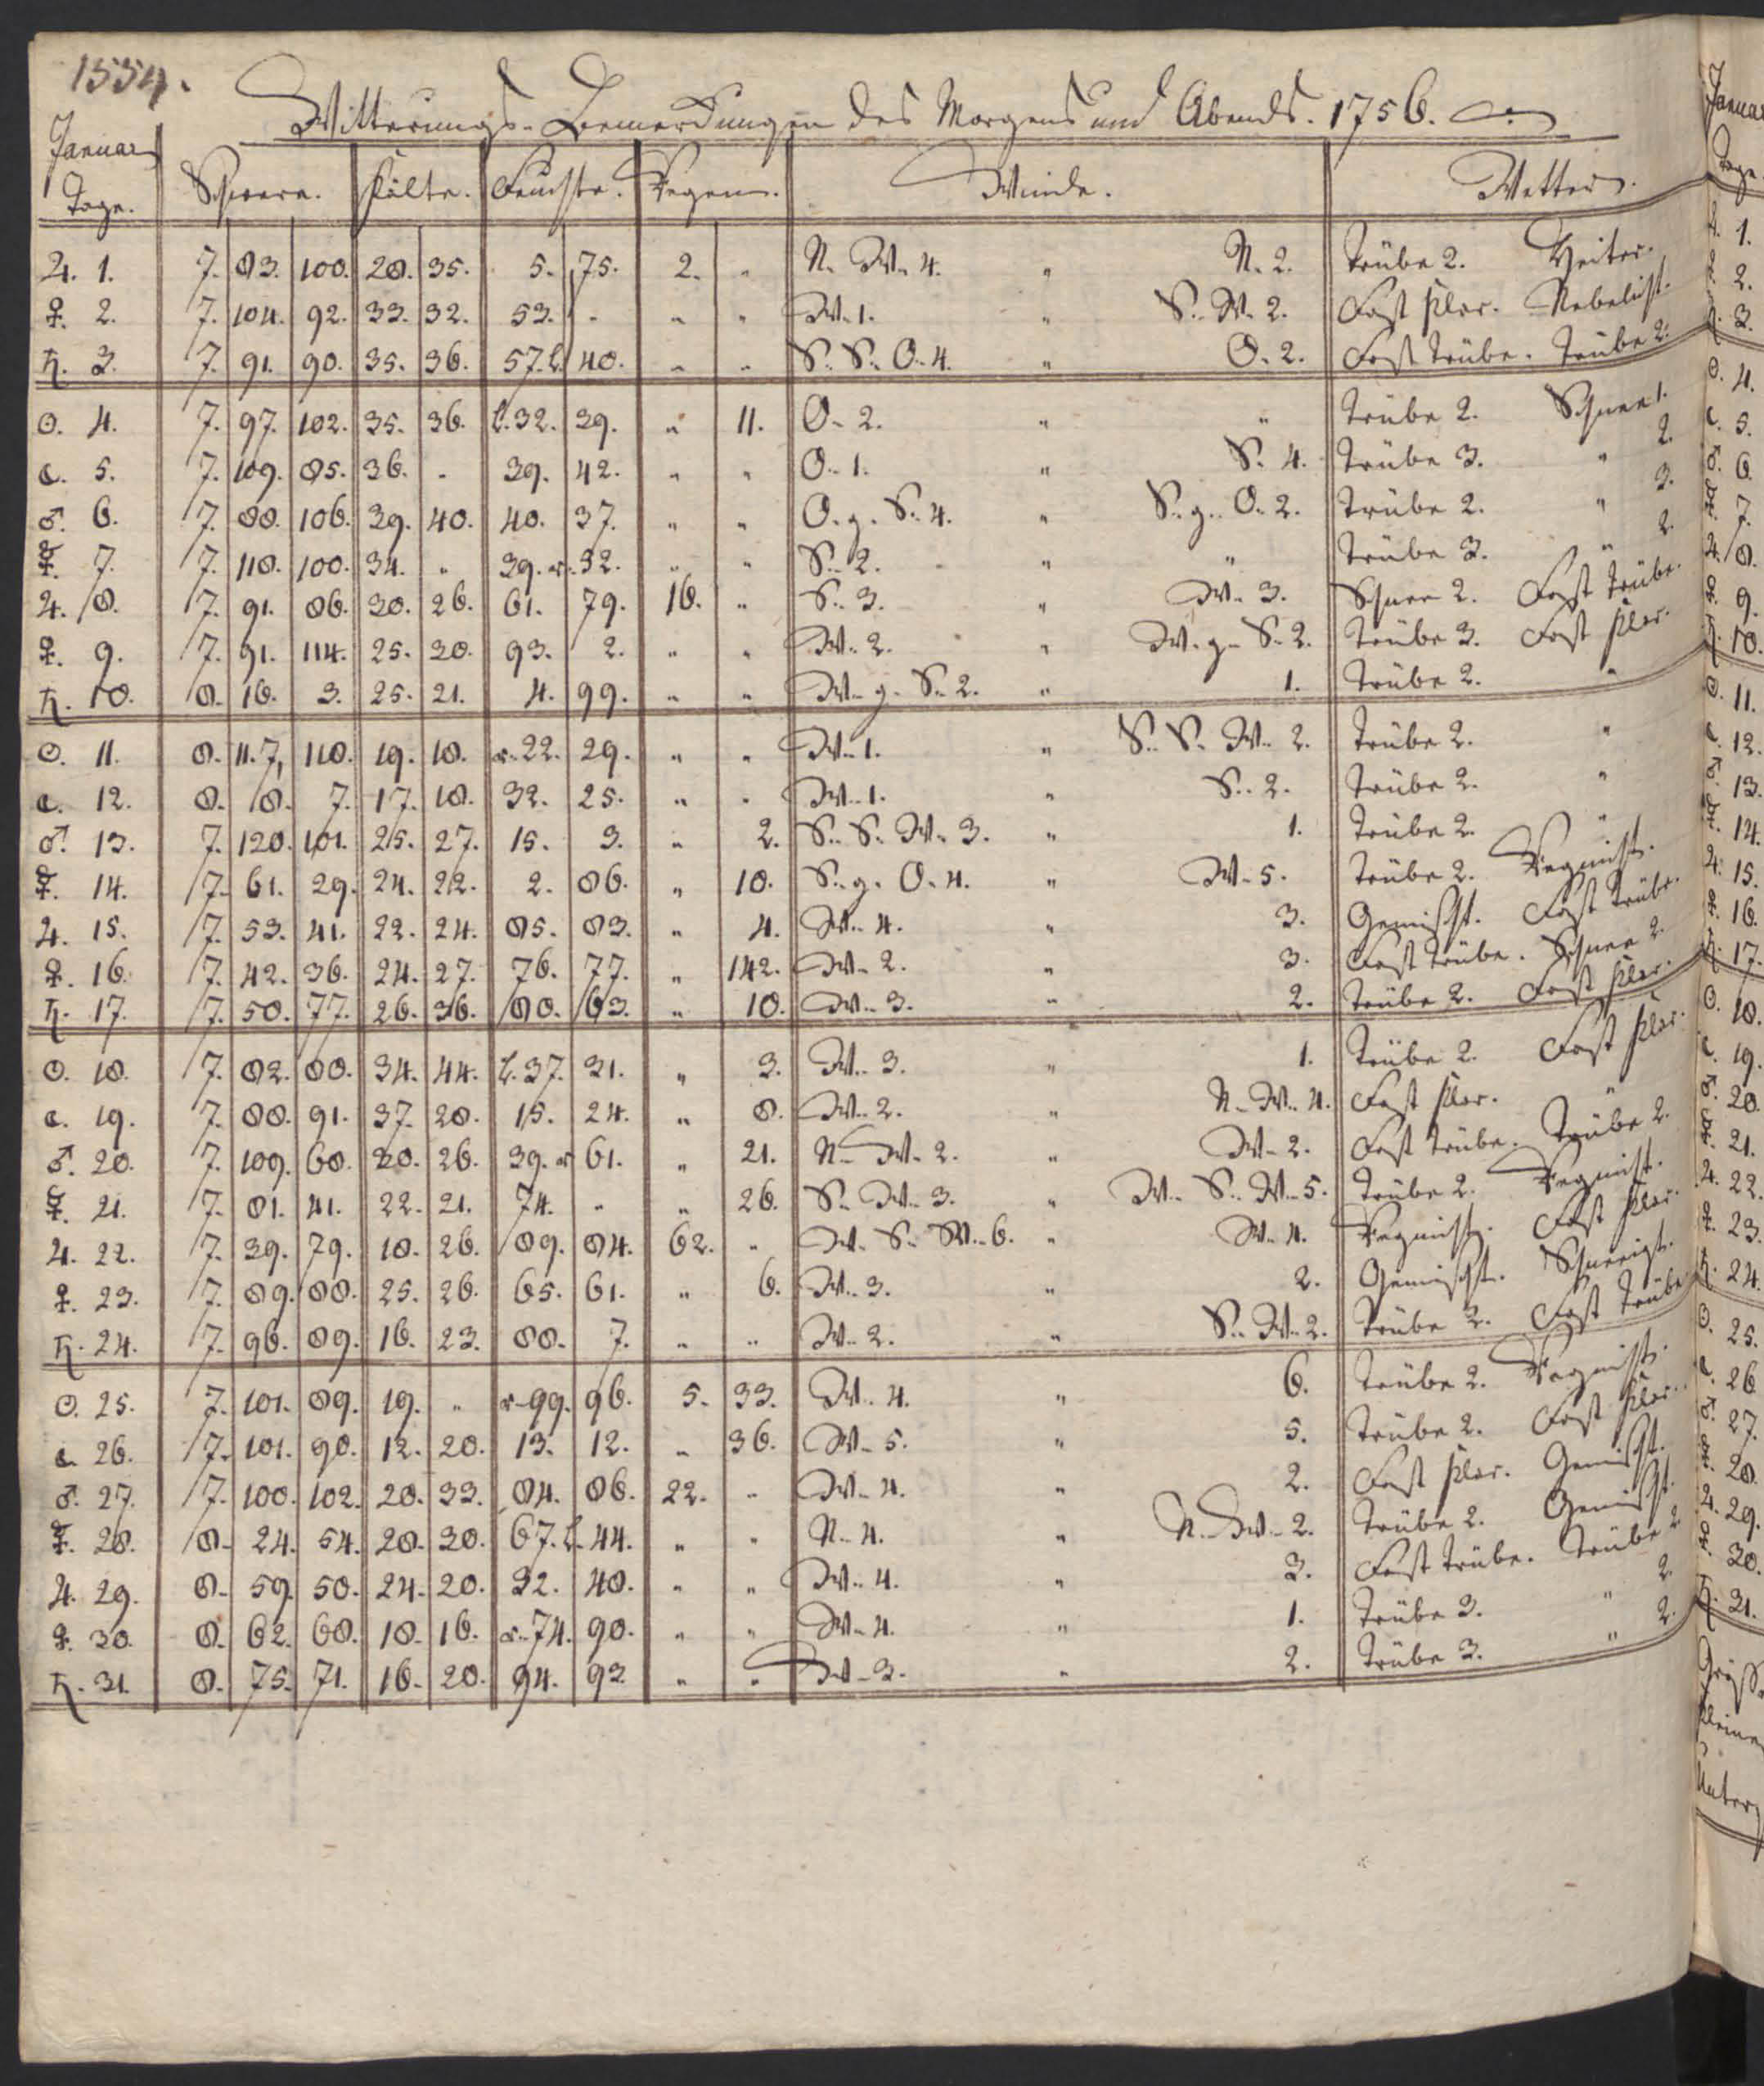 1554.
Witterungs-Bemerkungen des Morgens und Abends. 1756.
Januar
Tage. Schwere. Kälte. Feuchte. Regen. Winde. Wetter.
♃. 1. 7. 83. 100. 28. 35. 5. 75. 2. " N. W. 4. " N. 2. Trübe 2. Heiter.
♀. 2. 7. 104. 92. 33. 32. 53. " " " W. 1. " S. W. 2. Fast klar. Nebelicht.
♄. 3. 7. 91. 90. 35. 36. 57. l. 40. " " S. S. O. 4. " O. 2. Fast trübe. Trübe 2.
☉. 4. 7. 97. 102. 35. 36. l. 32. 39. " 11. O. 2. " " Trübe 2. Schnee 1.
☾. 5. 7. 109. 85. 36. " 39. 42. " " O. 1. " S. 4. Trübe 3. " 2.
♂. 6. 7. 88. 106. 39. 40. 40. 37. " " O. g. S. 4. " S. g. O. 2. Trübe 2. " 3.
☿. 7. 7. 118. 100. 34. " 39. r. 32. " " S. 2. " " Trübe 3. " 2.
♃. 8. 7. 91. 86. 30. 26. 61. 79. 16. " S. 3. " W. 3. Schnee 2. Fast trübe.
♀. 9. 7. 91. 114. 25. 20. 93. 2. " " W. 2. " W. g. S. 2. Trübe 3. Fast klar.
♄. 10. 8. 16. 3. 25. 21. 4. 99. " " W. g. S. 2. " 1. Trübe 2. "
☉. 11. 8. 11. 7, 118. 19. 18. r. 22. 29. " " W. 1. " S. S. W. 2. Trübe 2. "
☾. 12. 8. 8. 7. 17. 18. 32. 25. " " W. 1. " S. 2. Trübe 2. "
♂. 13. 7. 120. 101. 25. 27. 15. 3. " 2. S. S. W. 3. " 1. Trübe 2. "
☿. 14. 7. 61. 29. 24. 22. 2. 86. " 10. S. g. O. 4. " W. 5. Trübe 2. Regnicht.
♃. 15. 7. 53. 41. 22. 24. 85. 83. " 4. W. 4. " 3. Gemischt. Fast trübe.
♀. 16. 7. 42. 36. 24. 27. 76. 77. " 142. W. 2. " 3. Fast trübe. Schnee 2.
♄. 17. 7. 50. 77. 26. 36. 80. 63. " 10. W. 3. " 2. Trübe 2. Fast klar.
☉. 18. 7. 82. 80. 34. 44. l. 37. 31. " 3. W. 3. " 1. Trübe 2. Fast klar.
☾. 19. 7. 88. 91. 37. 28. 15. 24. " 8. W. 2. " N. W. 4. Fast klar. "
♂. 20. 7. 109. 60. 20. 26. 39. r. 61. " 21. N. W. 2. " W. 2. Fast trübe. Trübe 2.
☿. 21. 7. 81. 41. 22. 21. 74. " " 26. S. W. 3. " W. S. W. 5. Trübe 2. Regnicht.
♃. 22. 7. 39. 79. 18. 26. 89. 84. 62. " W. S. W. 6. " W. 4. Regnicht. Fast klar.
♀. 23. 7. 89. 88. 25. 26. 65. 61. " 6. W. 3. " 2. Gemischt. Schneeigt.
♄. 24. 7. 96. 89. 16. 23. 88. 7. " " W. 2. " S. W. 2. Trübe 2. Fast trübe
☉. 25. 7. 101. 89. 19. " r. 99. 96. 5. 33. W. 4. " 6. Trübe 2. Regnicht.
☾. 26. 7. 101. 90. 12. 20. 13. 12. " 36. W. 5. " 5. Trübe 2. Fast klar.
♂. 27. 7. 100. 102. 20. 33. 84. 86. 22. " W. 4. " 2. Fast klar. Gemischt.
☿. 28. 8. 24. 54. 28. 30. 67. l. 44. " " N. 4. " N. W. 2. Trübe 2. Gemischt.
♃. 29. 8. 59. 50. 24. 20. 32. 40. " " W. 4. " 3. Fast trübe. Trübe 2
♀. 30. 8. 62. 68. 18. 16. r. 74. 90. " " W. 4. " 1. Trübe 3. " 2.
♄. 31. 8. 75. 71. 16. 20. 94. 93. " " W. 3. " 2. Trübe 3. " 2.